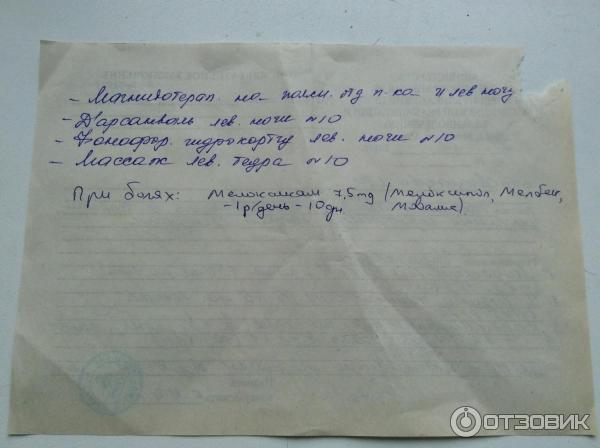 - Магнитотерап. на поясн. отд п-ка и лев ногу
- Д'арсанваль лев. ноги №10
- Фонофор. гидрокортиз лев. ноги №10
- Массаж лев. бедра №10
При болях: Мелоксикам 7,5 mg (Мелоксикол, Мелбек,
- 1р/день - 10 дн. Мовалис)
ОТЗОВИК